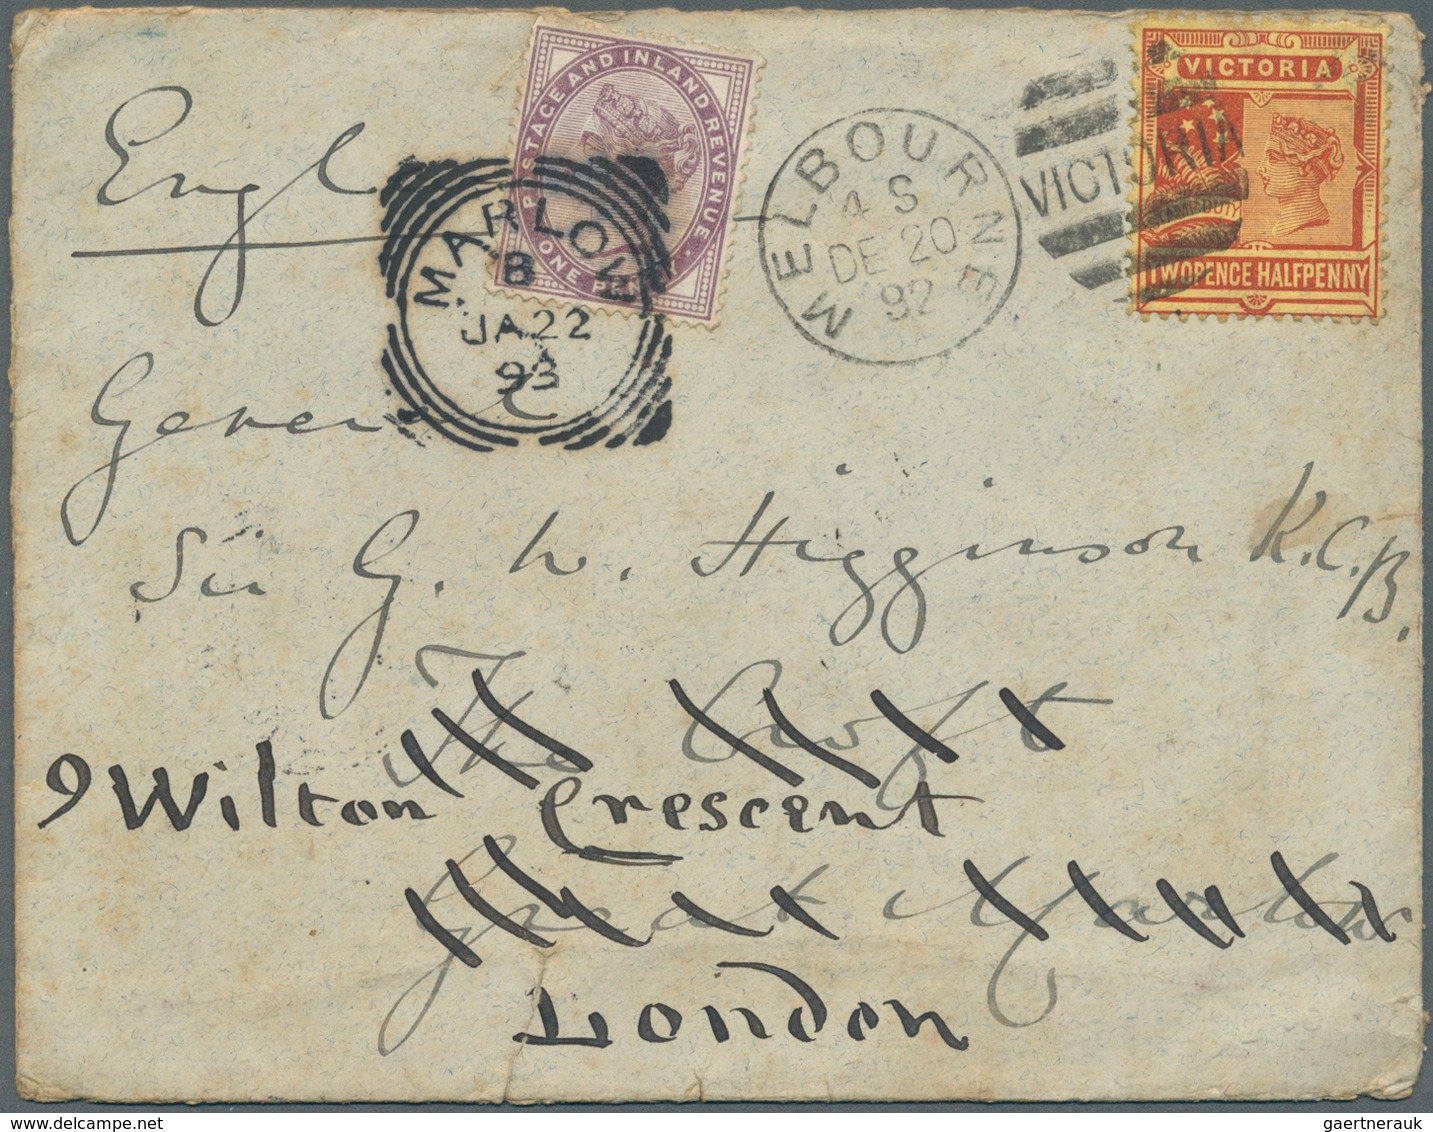 POSTAGE AND INLAND REVENUE
ONE P
VICTORIA
STAMP DUTY
TWOPENCE HALFPENNY
MELBOURNE
4 S
DE 20
92
VICTORIA
MARLOW
B
JA 22
93
Engl
General
Sir G. W. Higginson K.C.B.
The Croft
9 Wilton Crescent
Great Marlow
London
gaertnerauk